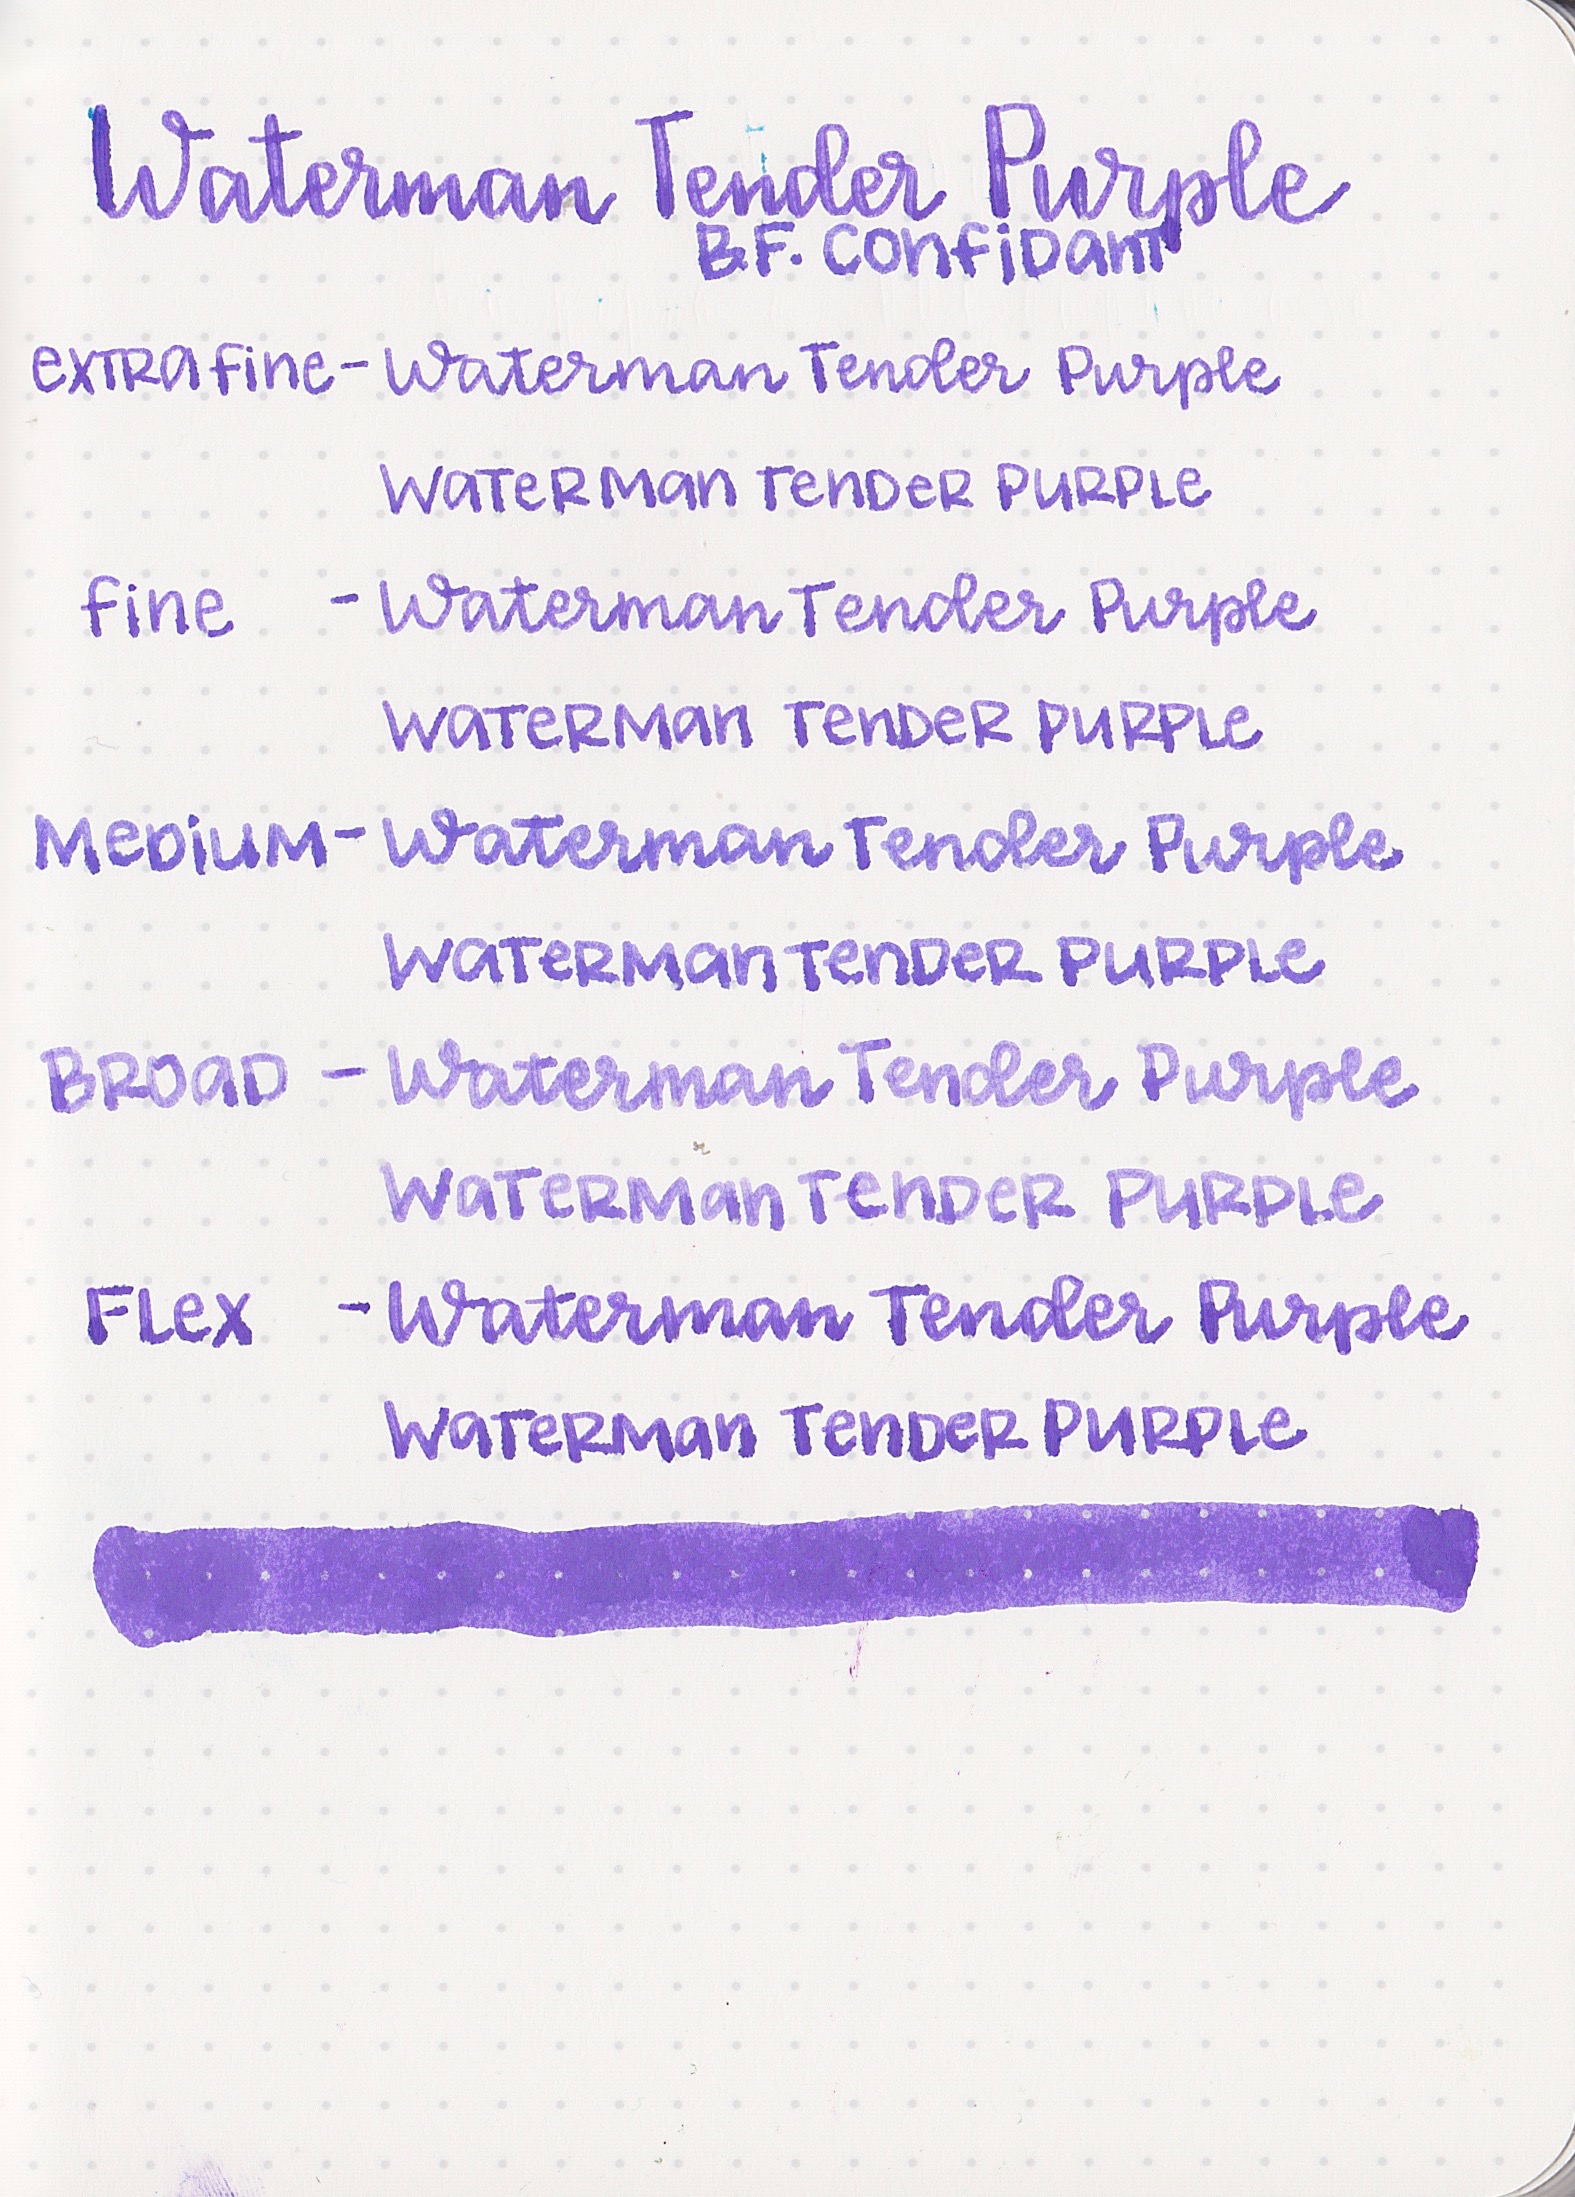 Waterman Tender Purple
B.F. Confidant
exTRa fine - Waterman Tender Purple
WaTeRMan TenDeR PURPLe
fine - Waterman Tender Purple
WaTeRMan TenDeR PURPLe
MeDiUM - Waterman Tender Purple
WaTeRMan TenDeR PURPLe
BROaD - Waterman Tender Purple
WaTeRMan TenDeR PURPLe
FLex - Waterman Tender Purple
WaTeRMan TenDeR PURPLe